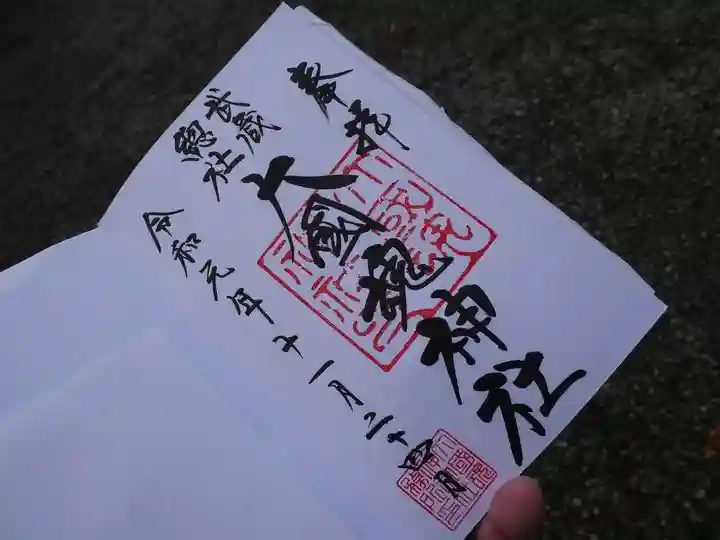 奉拝
大國魂神社
武蔵
總社
令和元年十一月二十四日